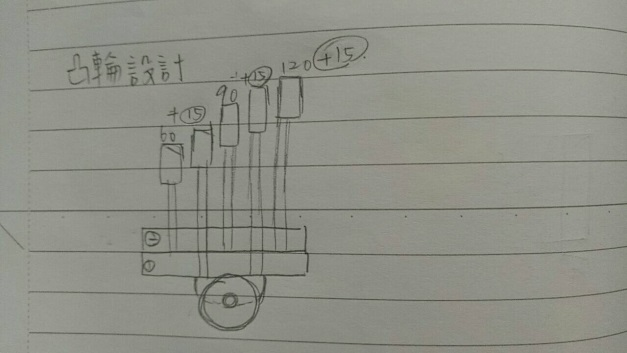 凸輪設計
60
+15
90
+15
120 +15